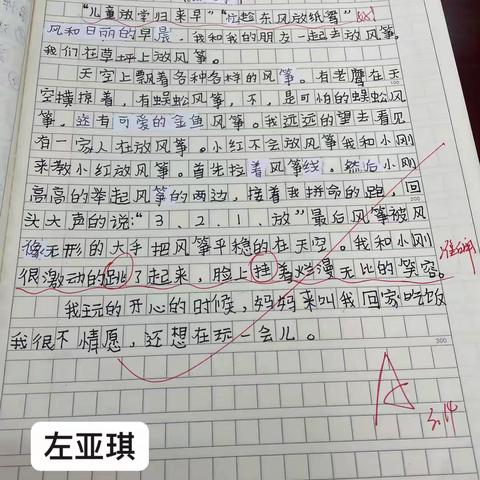 "儿童放学归来早""忙趁东风放纸鸢"
风和日丽的早晨，我和我的朋友一起去放风筝。
我们在草坪上放风筝。
天空上飘着各种各样的风筝。有老鹰在天
空横掠着，有蜈蚣风筝，不，是可怕的蜈蚣风
筝，还有可爱的金鱼风筝。我远远的望去看见
有一家人在放风筝。小红不会放风筝我和小刚
来教小红放风筝。首先拉着风筝线，然后小刚
高高的举起风筝的两边，接着我拼命的跑，回
头大声的说："3、2、1、放"最后风筝被风
像无形的大手把风筝平稳的在天空。我和小刚
很激动的跳了起来，脸上挂着烂漫无比的笑容。
我玩的开心的时候，妈妈来叫我回家吃饭
我很不情愿，还想在玩一会儿。
300
A
5.14
左亚琪